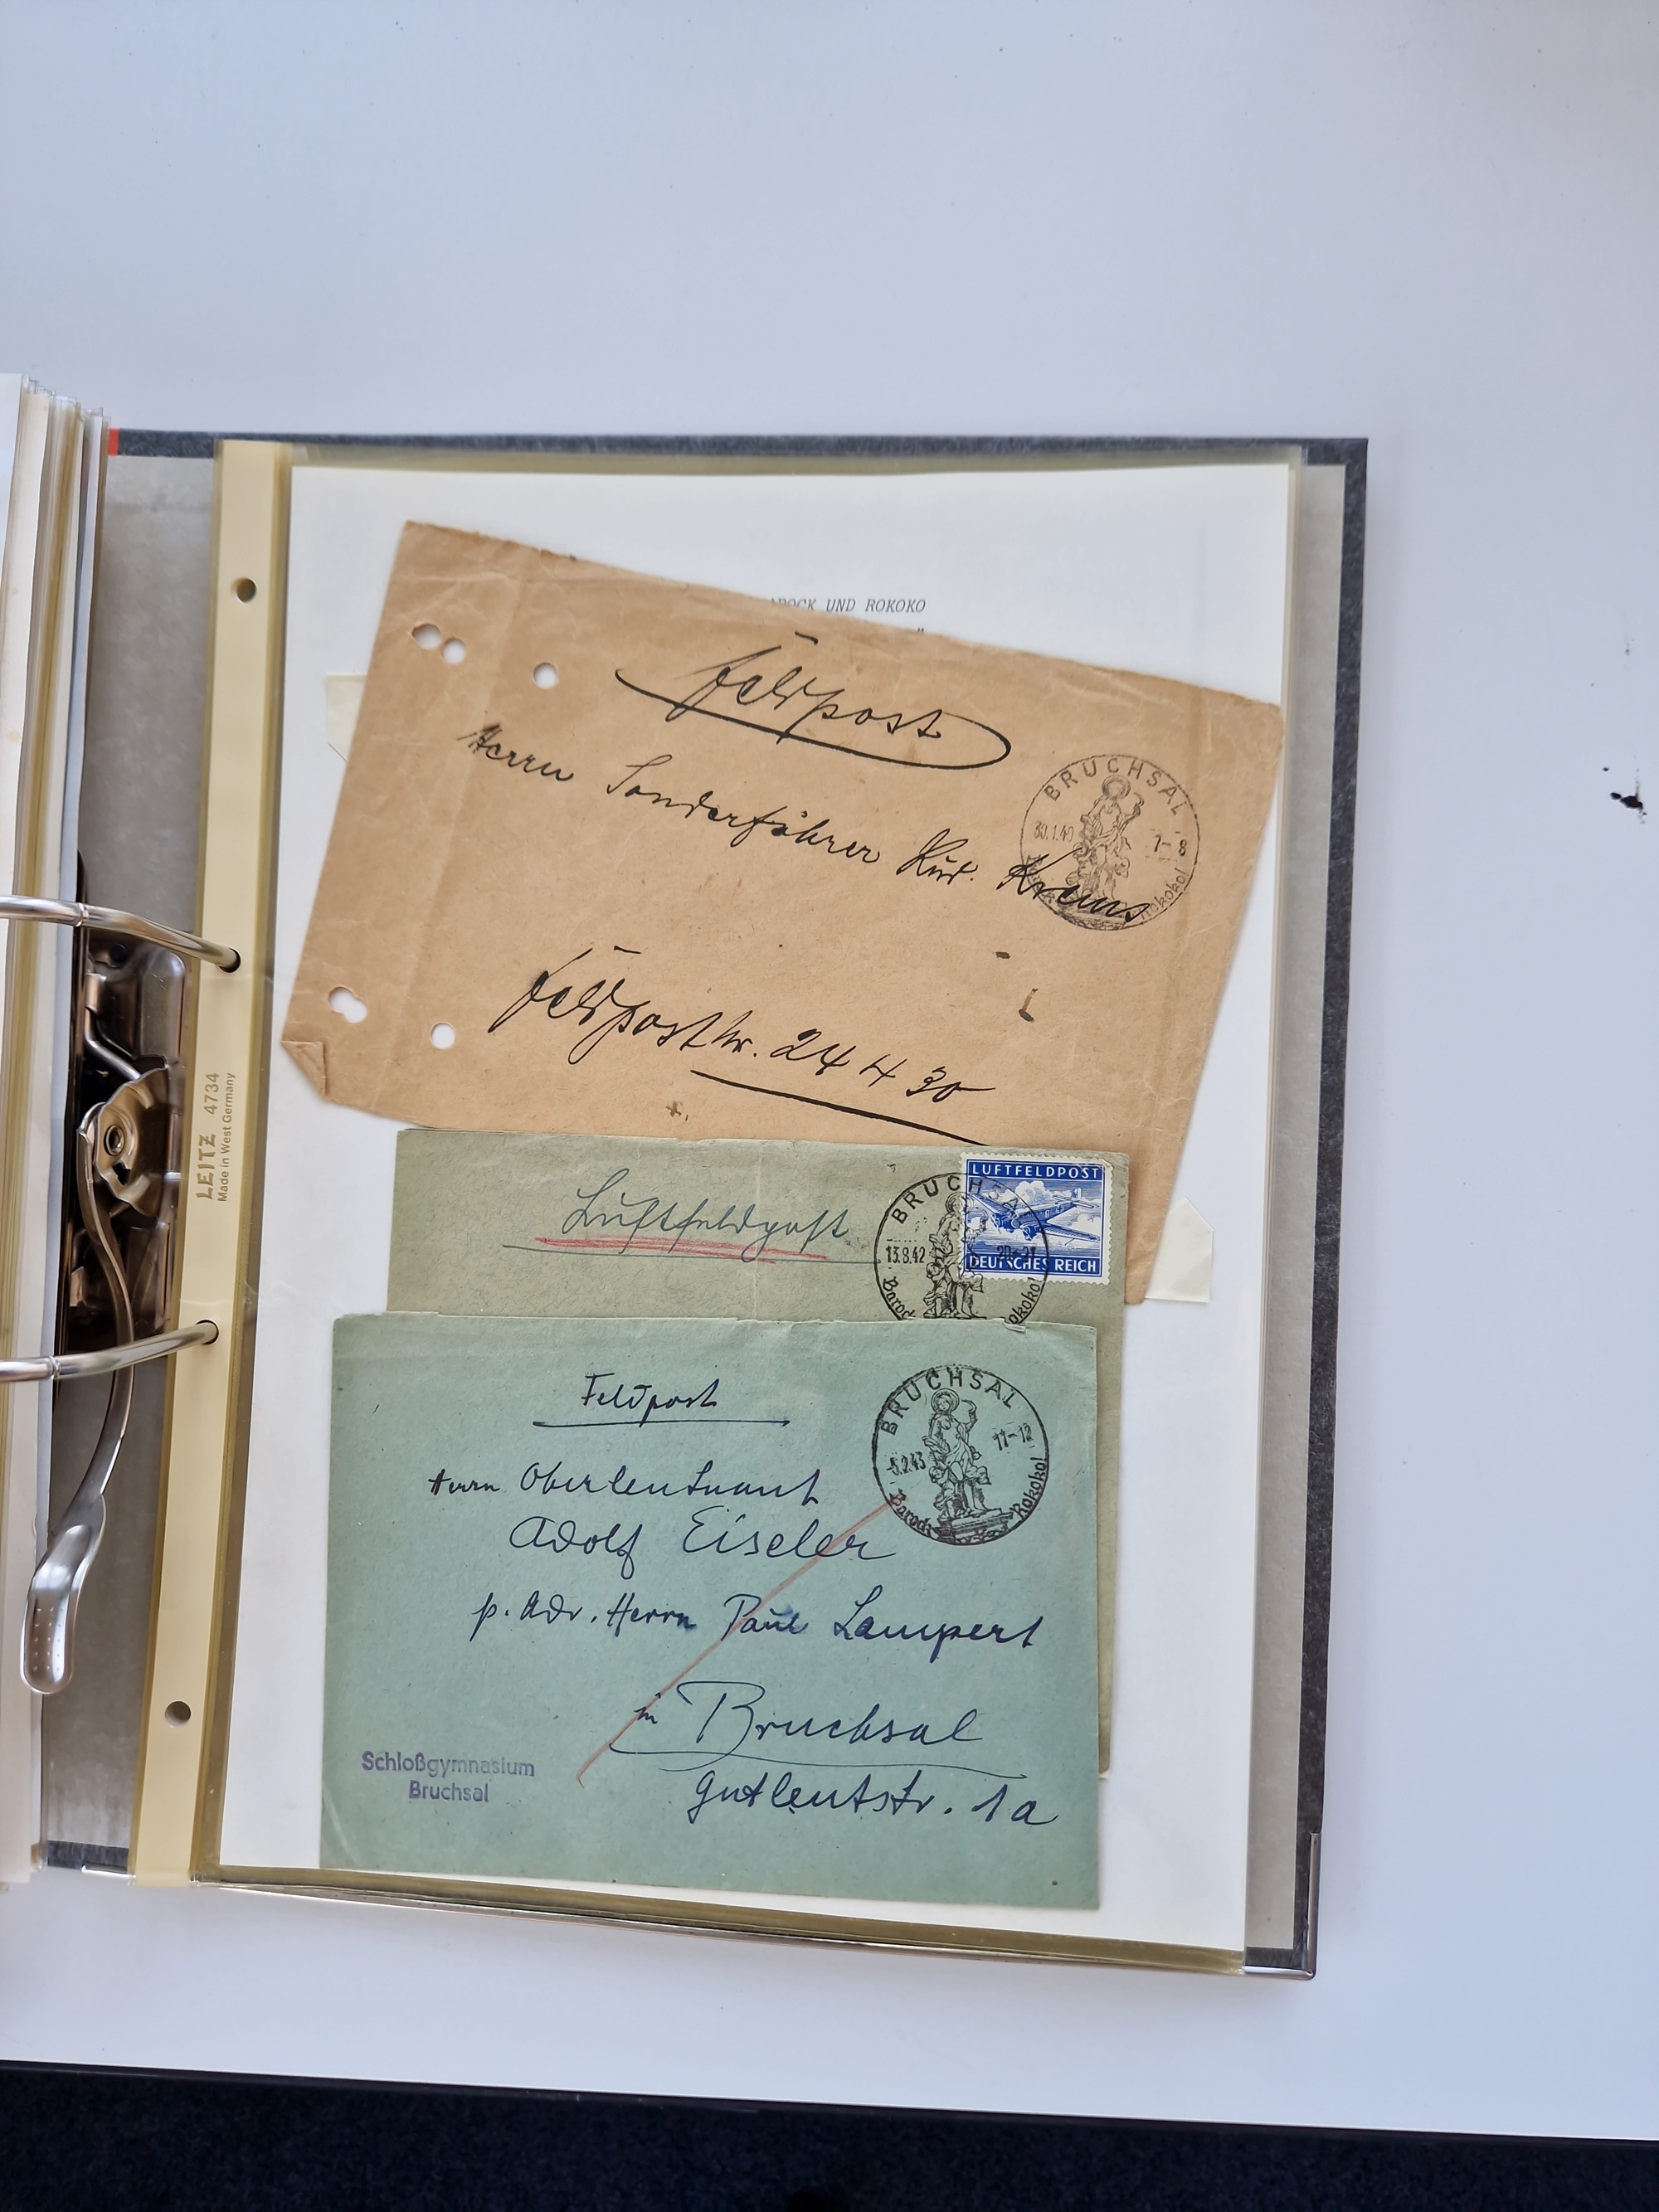 UND ROKOKO
Feldpost
Herrn Sonderführer Rud. Krems
BRUCHSAL
30.1.40 7-8
Rokoko!
Feldpostnr. 24430
LEITZ 4734
Made in West Germany
Luftfeldpost
BRUCHSAL
13.8.42 20-21
Barock
Rokoko!
LUFTFELDPOST
DEUTSCHES REICH
Feldpost
BRUCHSAL
-5.2.43 11-12
Barock Rokoko!
Herrn Oberleutnant
Adolf Eiseler
p. Adr. Herrn Paul Lampert
in Bruchsal
Gutleutstr. 1a
Schloßgymnasium
Bruchsal